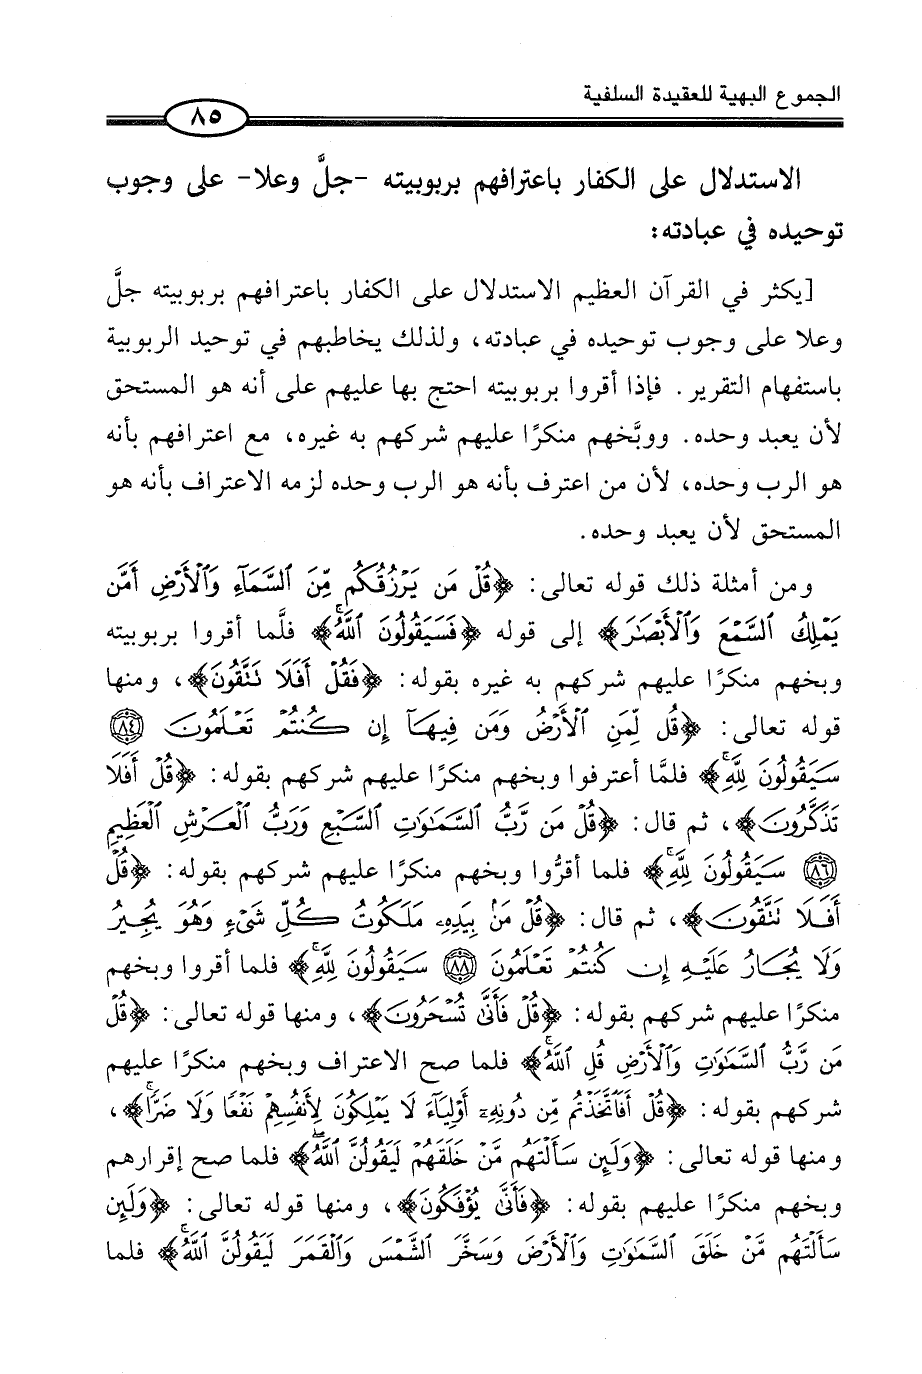 الجموع البهية للعقيدة السلفية
٨٥
الاستدلال على الكفار باعترافهم بربوبيته -جلَّ وعلا- على وجوب
توحيده في عبادته:
[يكثر في القرآن العظيم الاستدلال على الكفار باعترافهم بربوبيته جلَّ
وعلا على وجوب توحيده في عبادته، ولذلك يخاطبهم في توحيد الربوبية
باستفهام التقرير. فإذا أقروا بربوبيته احتج بها عليهم على أنه هو المستحق
لأن يعبد وحده. ووبَّخهم منكرًا عليهم شركهم به غيره، مع اعترافهم بأنه
هو الرب وحده، لأن من اعترف بأنه هو الرب وحده لزمه الاعتراف بأنه هو
المستحق لأن يعبد وحده.
ومن أمثلة ذلك قوله تعالى: ﴿قُلْ مَن يَرْزُقُكُم مِّنَ ٱلسَّمَآءِ وَٱلْأَرْضِ أَمَّن
يَمْلِكُ ٱلسَّمْعَ وَٱلْأَبْصَٰرَ﴾ إلى قوله ﴿فَسَيَقُولُونَ ٱللَّهُۚ﴾ فلَّما أقروا بربوبيته
وبخهم منكرًا عليهم شركهم به غيره بقوله: ﴿فَقُلْ أَفَلَا نَتَّقُونَ﴾، ومنها
قوله تعالى: ﴿قُل لِّمَنِ ٱلْأَرْضُ وَمَن فِيهَآ إِن كُنتُمْ تَعْلَمُونَ ۝٨٤
سَيَقُولُونَ لِلَّهِۚ﴾ فلمَّا أعترفوا وبخهم منكرًا عليهم شركهم بقوله: ﴿قُلْ أَفَلَا
تَذَكَّرُونَ﴾، ثم قال: ﴿قُلْ مَن رَّبُّ ٱلسَّمَٰوَٰتِ ٱلسَّبْعِ وَرَبُّ ٱلْعَرْشِ ٱلْعَظِيمِ
۝٨٦ سَيَقُولُونَ لِلَّهِۚ﴾ فلما أقرُّوا وبخهم منكرًا عليهم شركهم بقوله: ﴿قُلْ
أَفَلَا نَتَّقُونَ﴾، ثم قال: ﴿قُلْ مَنۢ بِيَدِهِۦ مَلَكُوتُ كُلِّ شَىْءٍ وَهُوَ يُجِيرُ
وَلَا يُجَارُ عَلَيْهِ إِن كُنتُمْ تَعْلَمُونَ ۝٨٨ سَيَقُولُونَ لِلَّهِۚ﴾ فلما أقروا وبخهم
منكرًا عليهم شركهم بقوله: ﴿قُلْ فَأَنَّىٰ تُسْحَرُونَ﴾، ومنها قوله تعالى: ﴿قُلْ
مَن رَّبُّ ٱلسَّمَٰوَٰتِ وَٱلْأَرْضِ قُلِ ٱللَّهُۚ﴾ فلما صح الاعتراف وبخهم منكرًا عليهم
شركهم بقوله: ﴿قُلْ أَفَٱتَّخَذْتُم مِّن دُونِهِۦٓ أَوْلِيَآءَ لَا يَمْلِكُونَ لِأَنفُسِهِمْ نَفْعًا وَلَا ضَرًّاۚ﴾،
ومنها قوله تعالى: ﴿وَلَئِن سَأَلْتَهُم مَّنْ خَلَقَهُمْ لَيَقُولُنَّ ٱللَّهُۖ﴾ فلما صح إقرارهم
وبخهم منكرًا عليهم بقوله: ﴿فَأَنَّىٰ يُؤْفَكُونَ﴾، ومنها قوله تعالى: ﴿وَلَئِن
سَأَلْتَهُم مَّنْ خَلَقَ ٱلسَّمَٰوَٰتِ وَٱلْأَرْضَ وَسَخَّرَ ٱلشَّمْسَ وَٱلْقَمَرَ لَيَقُولُنَّ ٱللَّهُۚ﴾ فلما